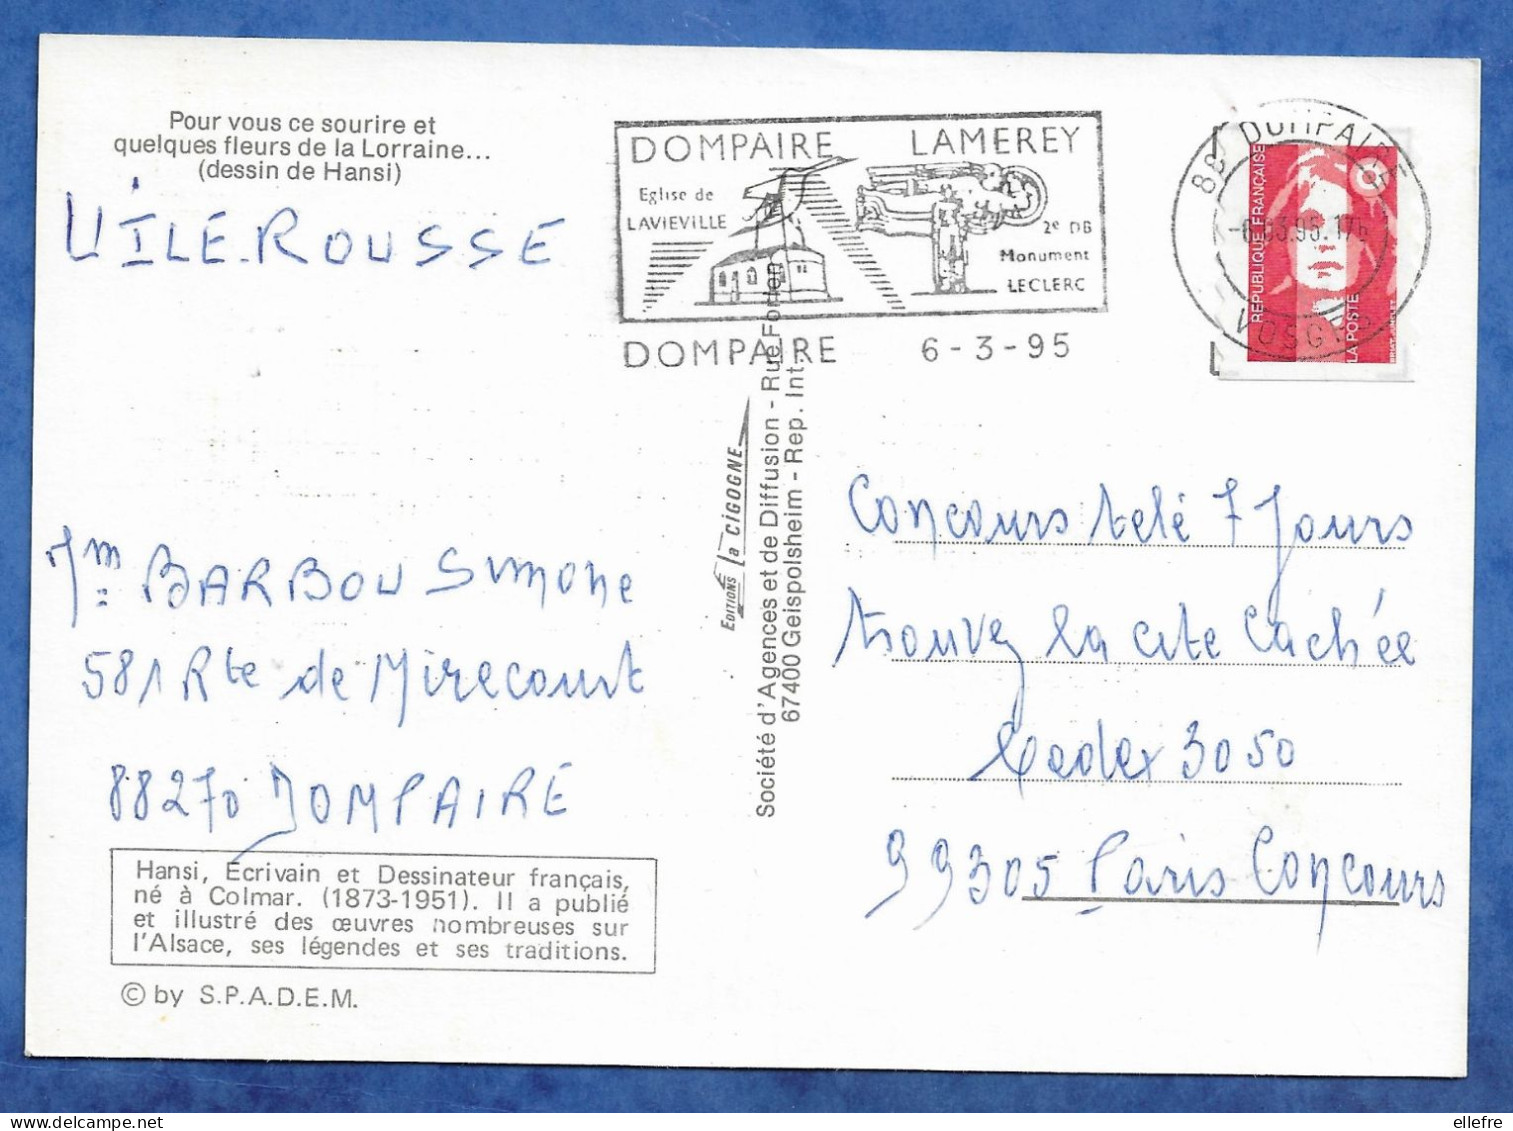 Pour vous ce sourire et
quelques fleurs de la Lorraine...
(dessin de Hansi)
L'ILE ROUSSE
DOMPAIRE LAMEREY
Eglise de
LAVIEVILLE
2e DB
Monument
LECLERC
DOMPAIRE 6-3-95
88 DOMPAIRE
VOSGES
REPUBLIQUE FRANÇAISE
LA POSTE
BRIAT-JUMELET
EDITIONS la CIGOGNE
Société d'Agences et de Diffusion - Rue
67400 Geispolsheim - Rep. Int.
Concours télé 7 Jours
trouvez la cite cachée
Cedex 3050
99305 Paris Concours
Mme BARBOU Simone
581 Rte de Mirecourt
88270 DOMPAIRE
Hansi, Ecrivain et Dessinateur français,
né à Colmar. (1873-1951). Il a publié
et illustré des œuvres nombreuses sur
l'Alsace, ses légendes et ses traditions.
© by S.P.A.D.E.M.
ellefre